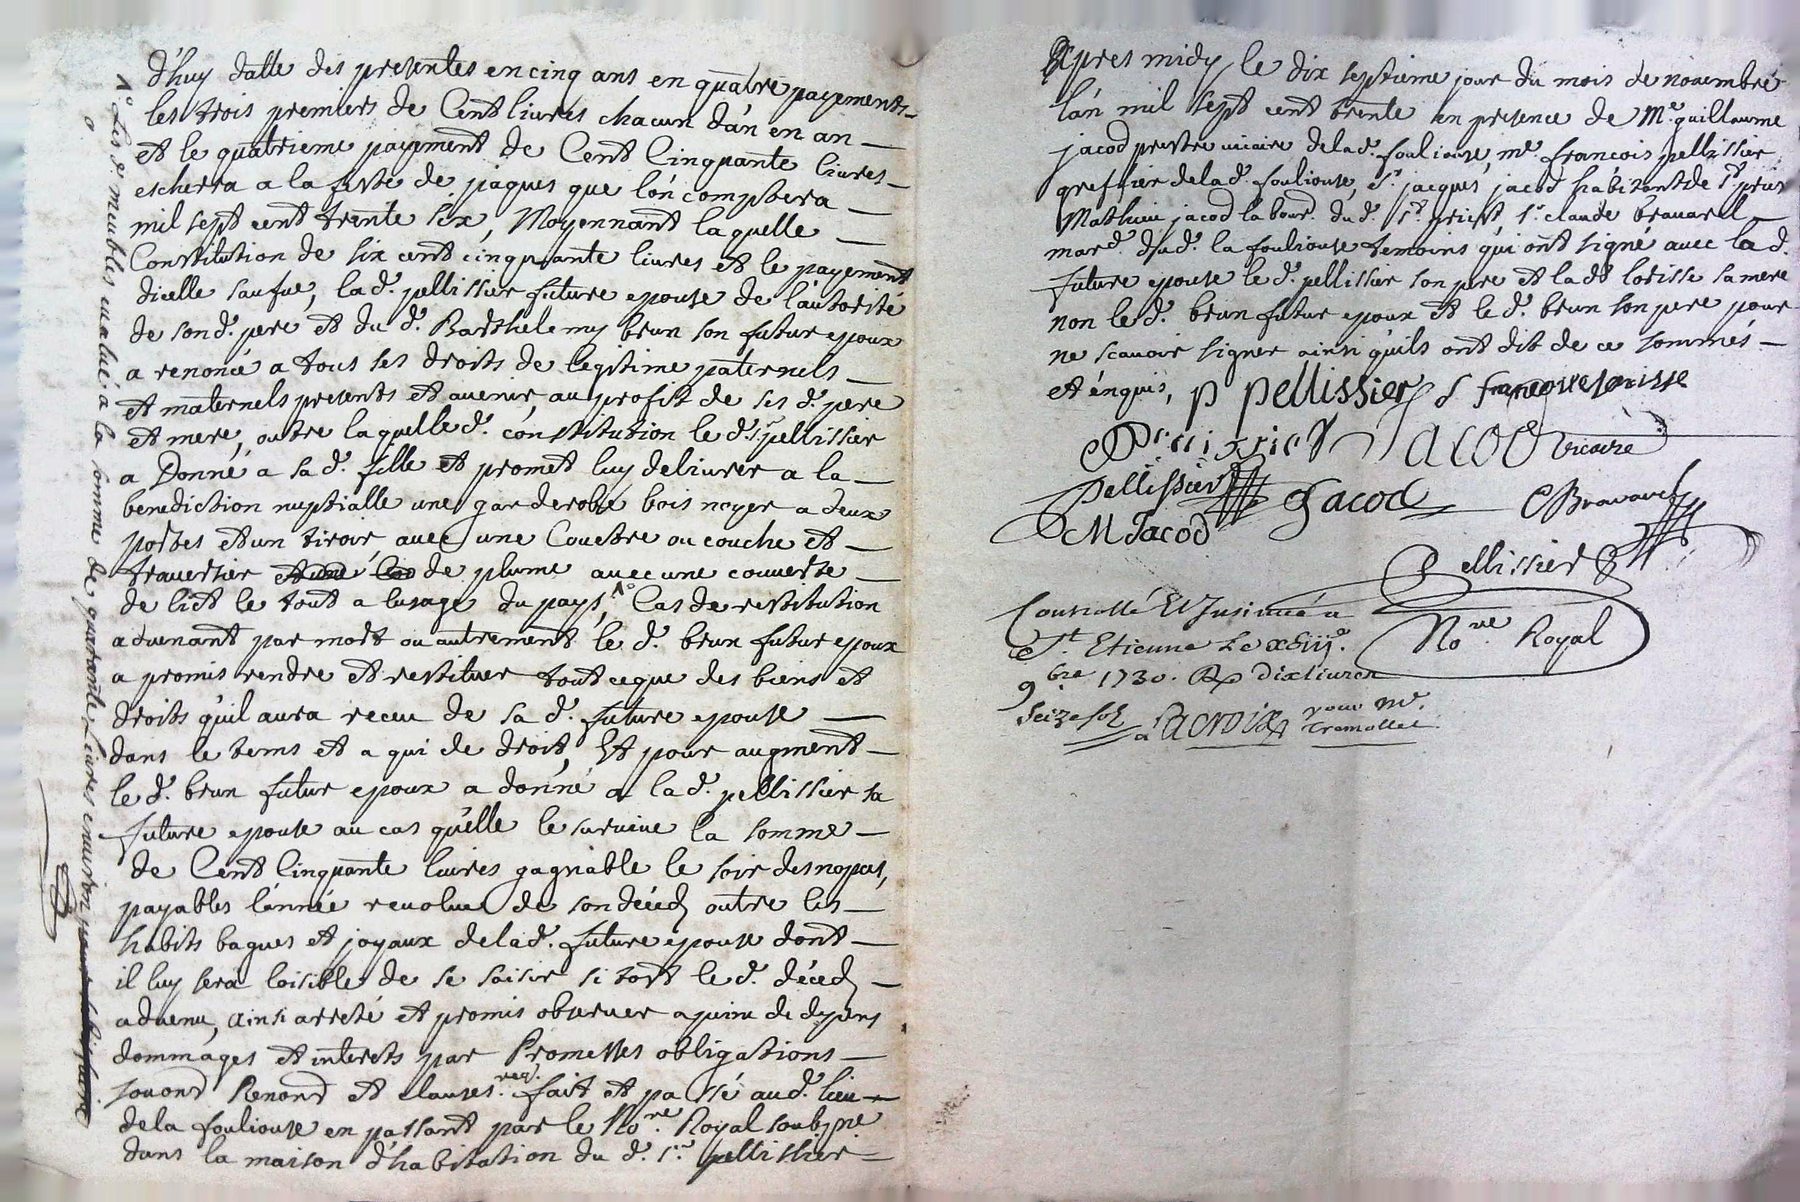 d'huy datte des presentes en cinq ans en quatre payements
les trois premiers de Cent livres chacun d'an en an
et le quatrieme payement de Cent Cinquante livres
eschera a la feste de jaques que l'on comptera
mil sept cent trente six, Moyennant laquelle
Constitution de six cent cinquante livres et le payement
dicelle saufue, la d. pellissier future epouse de l'autorité
de son d. pere et du d. Barthelemy brun son futur epoux
a renoncé a tous ses droits de legitime paternels
et maternels presents et avenir, au profit de ses d. pere
et mere, outre laquelle d. constitution le d. sr pellissier
a Donné a sa d. fille et promet luy delivrer a la
benediction nuptialle une garderobe bois noyer a deux
portes et un tiroir, avec une Couetre ou couche et
traversier de plume avec une couverte
de lict le tout a lusage du pays, 1° Cas de restitution
advenant par mort ou autrement le d. brun futur epoux
a promis rendre et restituer tout ce que des biens et
droits qu'il aura receu de sa d. future epouse
dans le tems et a qui de droit, Et pour augment
le d. brun futur epoux a donné a la d. pellissier sa
future epouse au cas qu'elle le survive la somme
de Cent Cinquante livres gagnable le soir des nopces,
payables l'année revolue de son décéd, outre les
habits bagues et joyaux de la d. future epouse dont
il luy sera loisible de se saisir si tost le d. décéd
advenu, ainsi arresté et promis observer a peine de depens
dommages et interests par Promesses obligations
soumond Renond et clauses req. fait et passé au d. lieu
de la fouliouse en passant par le No.re Royal soubsigné
dans la maison d'habitation du d. s.r pellissier
1° Les d. meubles evalué a la somme de quarante livres environ
Apres midy le dix septieme jour du mois de novembre
l'an mil sept cent trente en presence de M.e guillaume
jacod prestre vicaire de la d. fouliouse, m.e françois pellissier
greffier de la d. fouliouse, s.r jacques jacod habitant de s.t priest
Mathieu jacod labour. du d. s.t priest, s.r claude bravard
mar.d du d. la fouliouse temoins qui ont signé avec la d.
future epouse le d. pellissier son pere et la d. lorisse sa mere
non le d. brun futur epoux et le d. brun son pere pour
ne scavoir signer ainsi qu'ils ont dit de ce sommés
et enquis, p pellissier
Jacod vicaire
Pellissier Jacod CBravard
M Jacod
Pellissier
No.re Royal
Controllé Et Insinué a
St. Etienne Le
9bre 1730. R dix livres
Seize sols
a Lacroix pour m.r
Tramollet